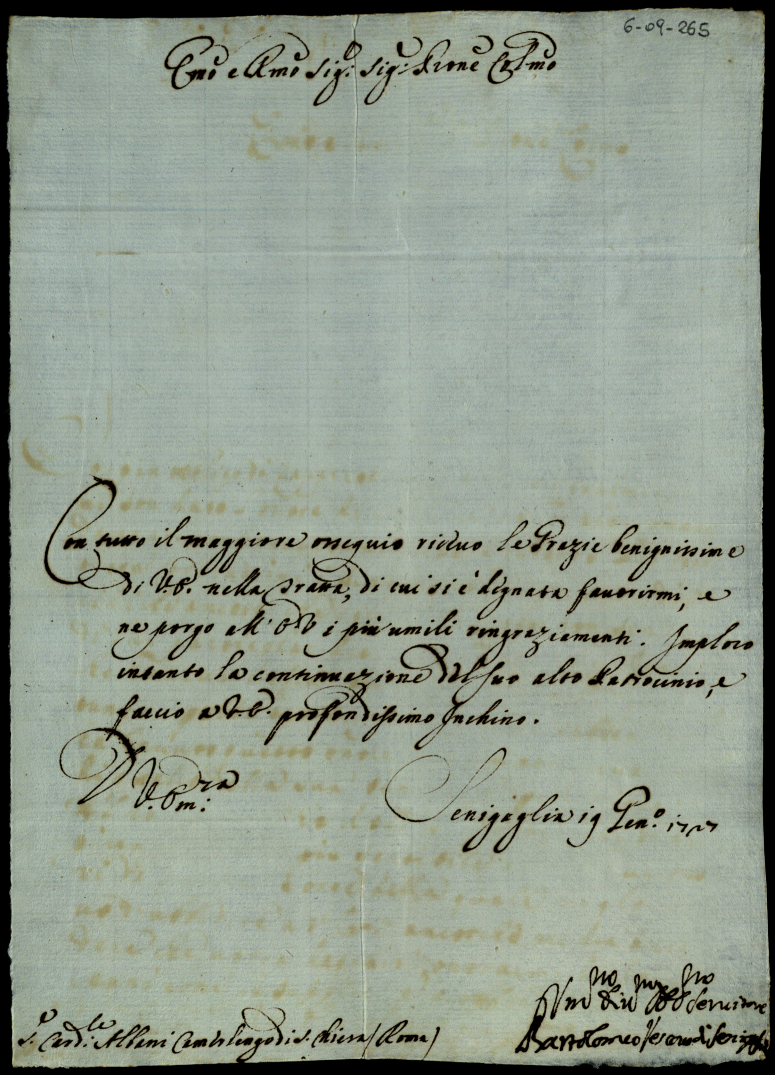 6-09-265
Emo e Rmo Sig.e Sig.e Prone Colmo
Con tutto il maggiore ossequio riceuo le Grazie benignissime
di V.E. nella tratta, di cui si è dignata fauorirmi, e
ne porgo all' E.V. i più umili ringraziamenti. Imploro
intanto la continuazione del suo alto Patrocinio, e
faccio a V.E. profondissimo Inchino.
D V. Em:za
Senigaglia 19 Gen.o 1727
Vm.no Diu.mo Obb.mo Seruidore
Bartolomeo Vescouo di Senigaglia
S.e Card.le Albani Camerlengo di S. Chiesa (Roma)